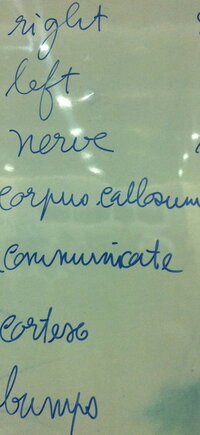 right
left
nerve
corpus callosum
communicate
cortex
bumps